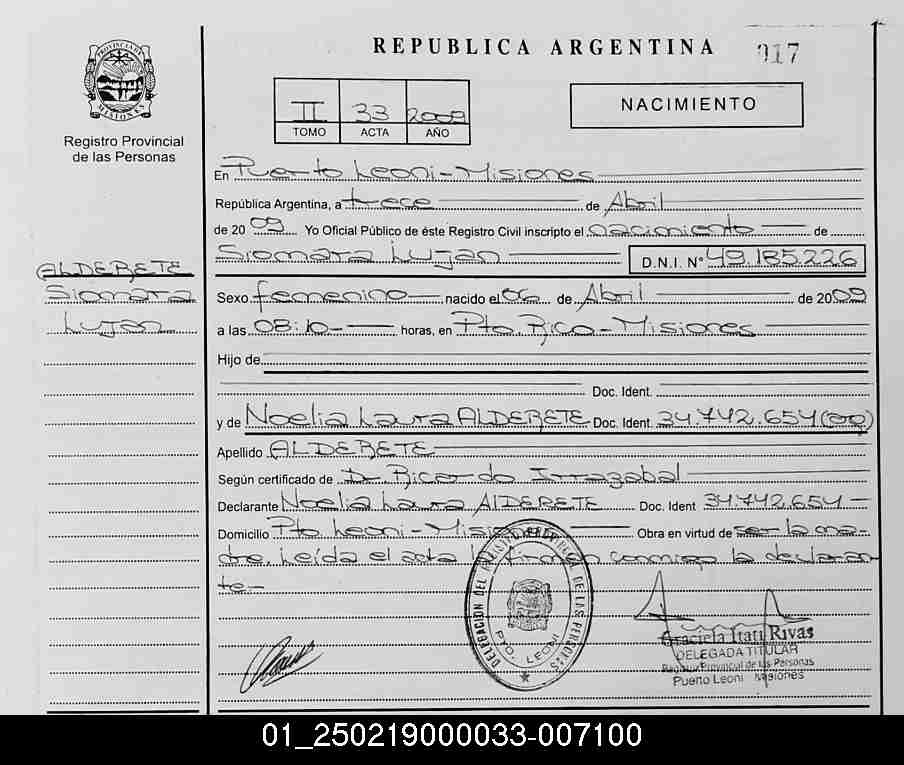 REPUBLICA ARGENTINA
017
PROVINCIA DE MISIONES
Registro Provincial
de las Personas
II 33 2009
TOMO ACTA AÑO
NACIMIENTO
En Puerto Leoni - Misiones
República Argentina, a trece de Abril
de 20 09 Yo Oficial Público de éste Registro Civil inscripto el nacimiento de
Siomara Lujan D.N.I. N° 49.185.226
ALDERETE
Siomara
Lujan
Sexo femenino nacido el 06 de Abril de 2009
a las 08:10- horas, en Pto Rico - Misiones
Hijo de
Doc. Ident.
y de Noelia Laura ALDERETE Doc. Ident. 34.742.654
Apellido ALDERETE
Según certificado de Dr. Ricardo Irrazabal
Declarante Noelia Laura ALDERETE Doc. Ident 34.742.654
Domicilio Pto Leoni - Misiones Obra en virtud de ser la ma-
dre. Leída el acta la firman conmigo la declaran-
te-
DELEGACION DEL REGISTRO PROVINCIAL DE LAS PERSONAS
PTO. LEONI
Graciela Itatí Rivas
DELEGADA TITULAR
Registro Provincial de las Personas
Puerto Leoni Misiones
01_250219000033-007100